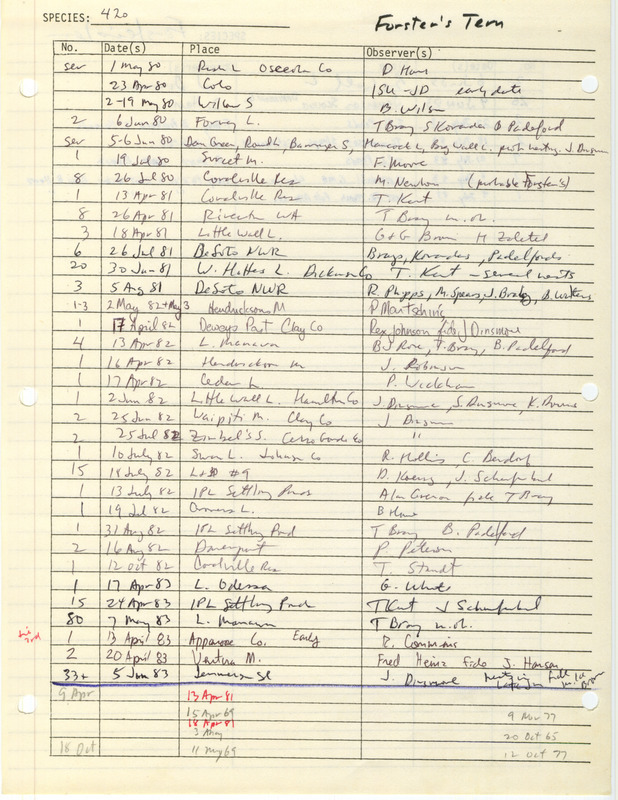 SPECIES: 420
Forster's Tern
No. Date(s) Place Observer(s)
sev 1 May 80 Rush L Osceola Co D Harr
23 Apr 80 Colo ISU-JD early date
2-19 May 80 Willow S B. Wilson
2 6 Jun 80 Forney L. T Bray S Kovanda B Padelford
sev 5-6 Jun 80 Dan Green, Round L, Barringer S, Hancock L, Big Wall L. prob nesting. J. Dinsmore
1 19 Jul 80 Sweet M. F. Moore
8 26 Jul 80 Coralville Res M. Newlon (probable Forster's)
1 13 Apr 81 Coralville Res T. Kent
8 26 Apr 81 Riverton WA T Bray m.ob.
3 18 Apr 81 Little Wall L. G+G Brown H Zaletel
6 26 Jul 81 DeSoto NWR Brays, Kovandas, Padelfords
20 30 Jun 81 W. Hottes L. Dickinson Co T. Kent - several nests
3 5 Aug 81 DeSoto NWR R. Phipps, M. Spears, J. Brady, B. Wilkens
1-3 2 May 82 + May 3 Hendrickson M P Martsching
1 17 April 82 Deweys Past Clay Co Rex Johnson fide J Dinsmore
4 13 Apr 82 L. Manawa BJ Rose, T. Bray, B. Padelford
1 16 Apr 82 Hendrickson M J. Robinson
1 17 Apr 82 Cedar L. P. Wickham
1 2 Jun 82 Little Wall L. Hamilton Co J. Dinsmore, S. Dinsmore, K. Brown
2 25 Jun 82 Waipiti M. Clay Co J Dinsmore
2 25 Jul 82 Zirbel's S. Cerro Gordo Co "
1 10 July 82 Swan L. Johnson Co R. Hollis, C. Bendorf
15 18 July 82 L+D #9 D. Koenig, J. Schaufenbuel
1 13 July 82 IPL Settling Ponds Alan Grenon fide T Bray
1 19 Jul 82 Owners L. B Howe
1 31 Aug 82 IPL Settling Pond T Bray B. Padelford
2 16 Aug 82 Davenport P. Petersen
1 12 Oct 82 Coralville Res T. Staudt
1 17 Apr 83 L. Odessa G. White
15 24 Apr 83 IPL Settling Pond T Kent J Schaufenbuel
80 7 May 83 L. Manawa T Bray m.ob.
1 13 April 83 Appanoose Co. Early R. Cummins
2 20 April 83 Ventura M. Fred Heinz fide J. Hansen
33+ 5 Jun 83 Jemmerson Sl J. Dinsmore nesting in
9 Apr 13 Apr 81
15 Apr 69
18 Apr 81 9 Nov 77
3 May 20 Oct 65
18 Oct 11 May 69 12 Oct 77